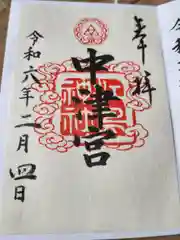 奉拝
中津宮
令和六年二月四日